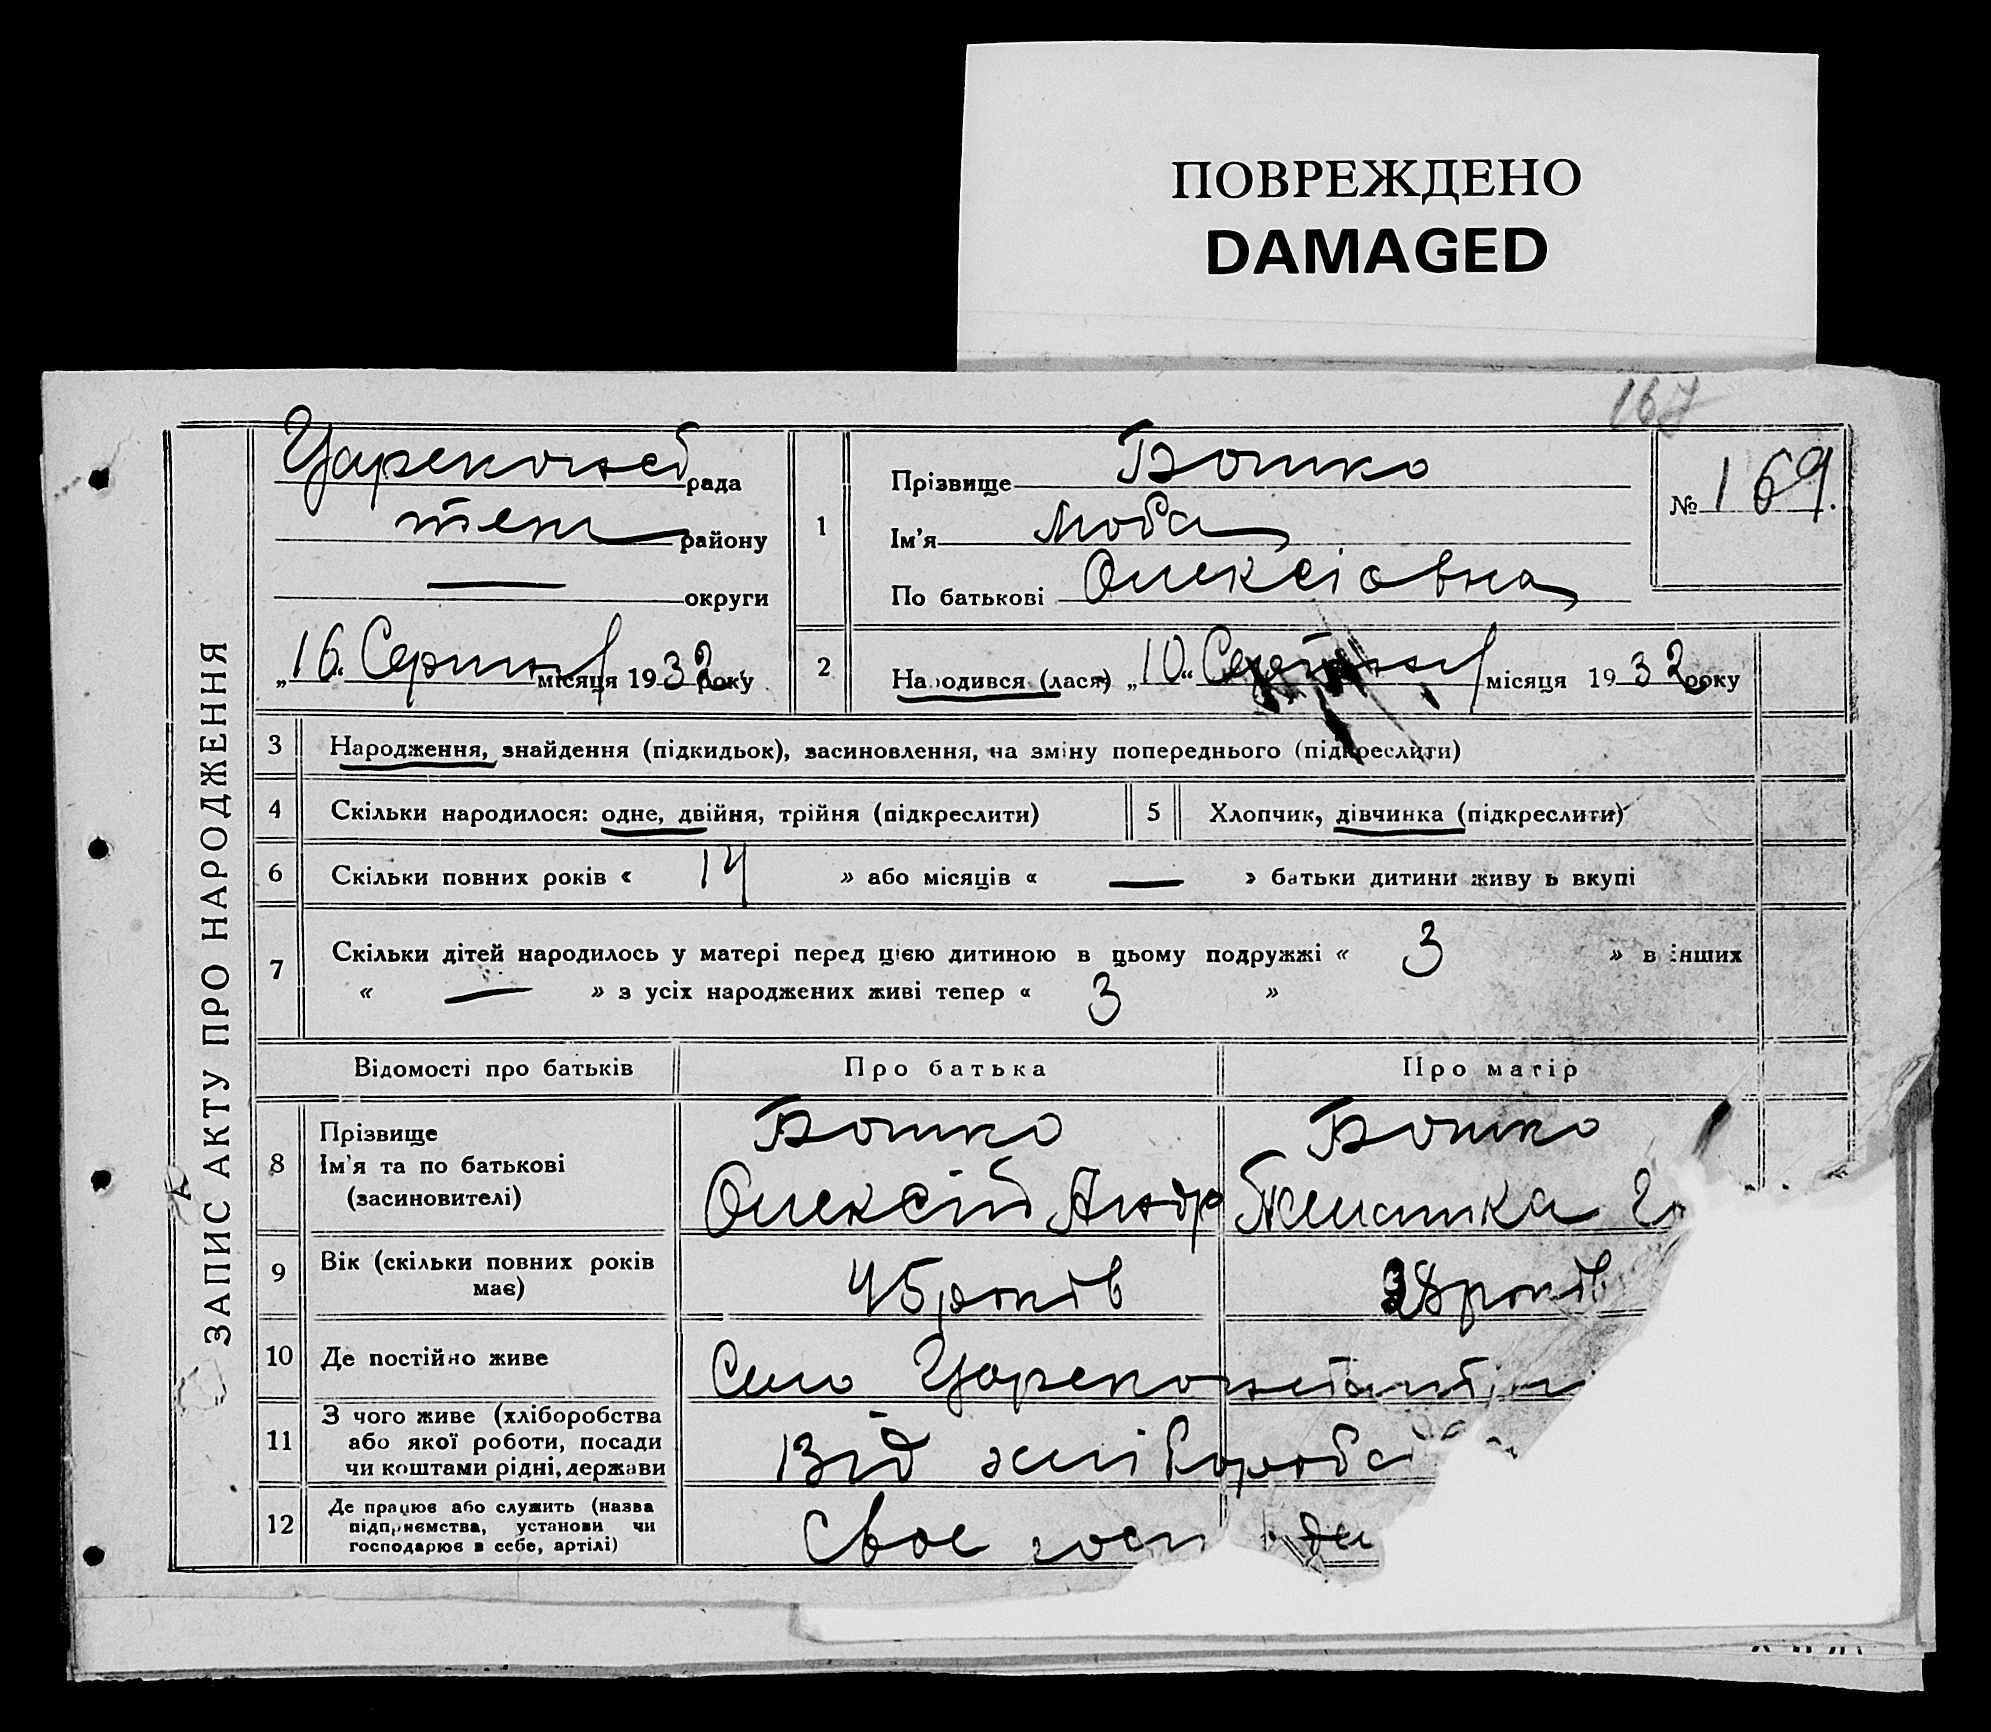 ПОВРЕЖДЕНО
DAMAGED
167
ЗАПИС АКТУ ПРО НАРОДЖЕННЯ
Цареконст рада
тен району
— округи
„16“ Серпня місяця 1932 року
1
Прізвище Бошко
Ім'я Люба
По батькові Олексіовна
№ 169.
2
Народився (лася) „10“ Серпня місяця 1932 року
3 Народження, знайдення (підкидьок), засиновлення, на зміну попереднього (підкреслити)
4 Скільки народилося: одне, двійня, трійня (підкреслити) 5 Хлопчик, дівчинка (підкреслити)
6 Скільки повних років « 14 » або місяців « — » батьки дитини живуть вкупі
7 Скільки дітей народилось у матері перед цією дитиною в цьому подружжі « 3 » в інших
« — » з усіх народжених живі тепер « 3 »
Відомості про батьків Про батька Про матір
8 Прізвище Бошко Бошко
Ім'я та по батькові Олексій Андр
(засиновителі)
9 Вік (скільки повних років має) 45 років 38 років
10 Де постійно живе Село Цареконстантін
11 З чого живе (хліборобства
або якої роботи, посади
чи коштами рідні, держави Від хліборобс
12 Де працює або служить (назва
підприємства, установи чи
господарює в себе, артілі) Своє госп